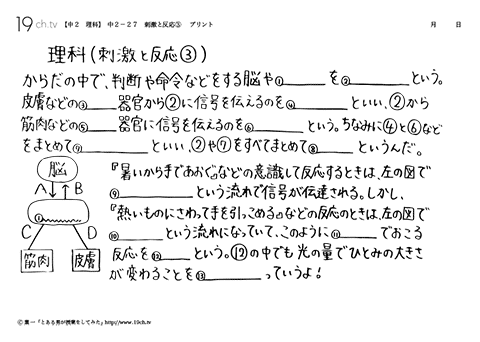 19ch.tv 【中2 理科】 中2-27 刺激と反応③ プリント 月 日
理科(刺激と反応③)
からだの中で、判断や命令などをする脳や① を② という。
皮膚などの③ 器官から②に信号を伝えるのを④ といい、②から
筋肉などの⑤ 器官に信号を伝えるのを⑥ という。ちなみに④と⑥など
をまとめて⑦ といい、②や⑦をすべてまとめて⑧ というんだ。
脳
A B
①
C D
筋肉 皮膚
『暑いから手であおぐ』などの意識して反応するときは、左の図で
⑨ という流れで信号が伝達される。しかし、
『熱いものにさわって手を引っこめる』などの反応のときは、左の図で
⑩ という流れになっていて、このように⑪ でおこる
反応を⑫ という。⑫の中でも光の量でひとみの大きさ
が変わることを⑬ っていうよ!
© 葉一「とある男が授業をしてみた」http://www.19ch.tv